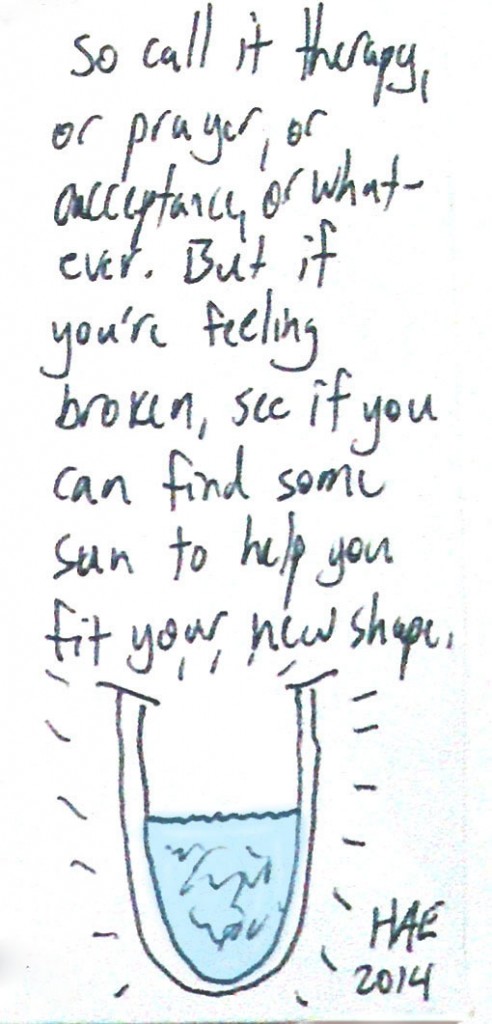 so call it therapy,
or prayer, or
acceptance, or what-
ever. But if
you're feeling
broken, see if you
can find some
sun to help you
fit your new shape.
HAE
2014